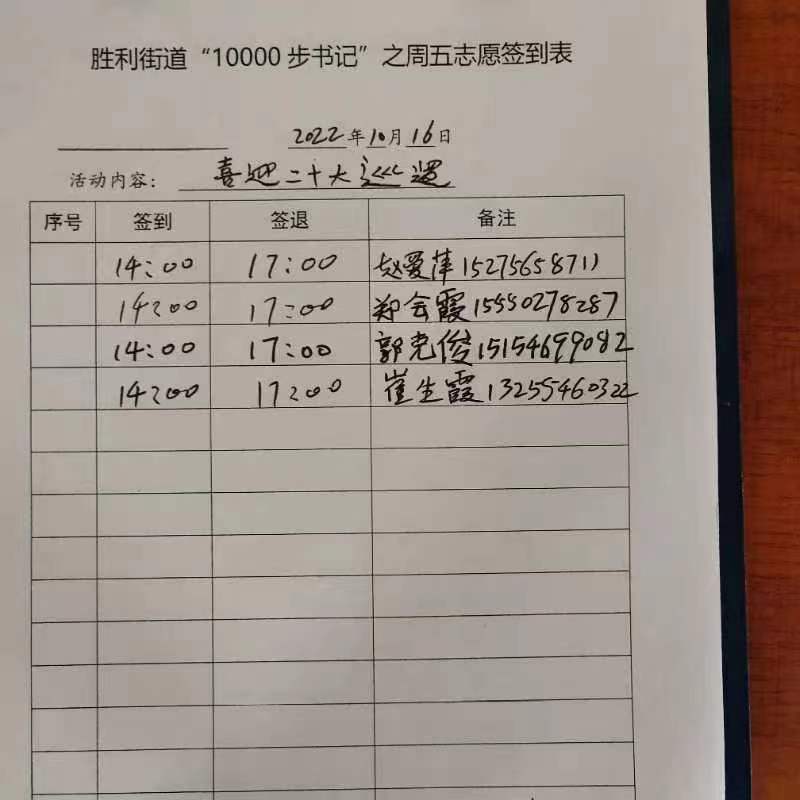 胜利街道“10000步书记”之周五志愿签到表
2022年10月16日
活动内容：喜迎二十大巡逻
序号 签到 签退 备注
14:00 17:00 赵爱萍15275658711
14:00 17:00 郑会霞15550278287
14:00 17:00 郭光俊15154699082
14:00 17:00 崔生霞13255460322